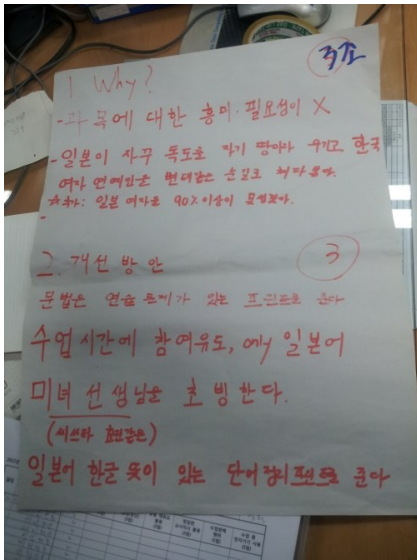 3조
1. Why?
- 과목에 대한 흥미·필요성이 X
- 일본이 자꾸 독도를 자기 땅이라 우기고 한국
여자 연예인을 변태같은 눈길로 쳐다본다.
일본 여자는 90% 이상이 못생겼다.
-
3
2. 개선 방안
문법은 연습 문제가 있는 프린트로 준다
수업시간에 참여유도, only 일본어
미녀 선생님을 초빙한다.
일본어 한글 뜻이 있는 단어정리 프린트로 준다